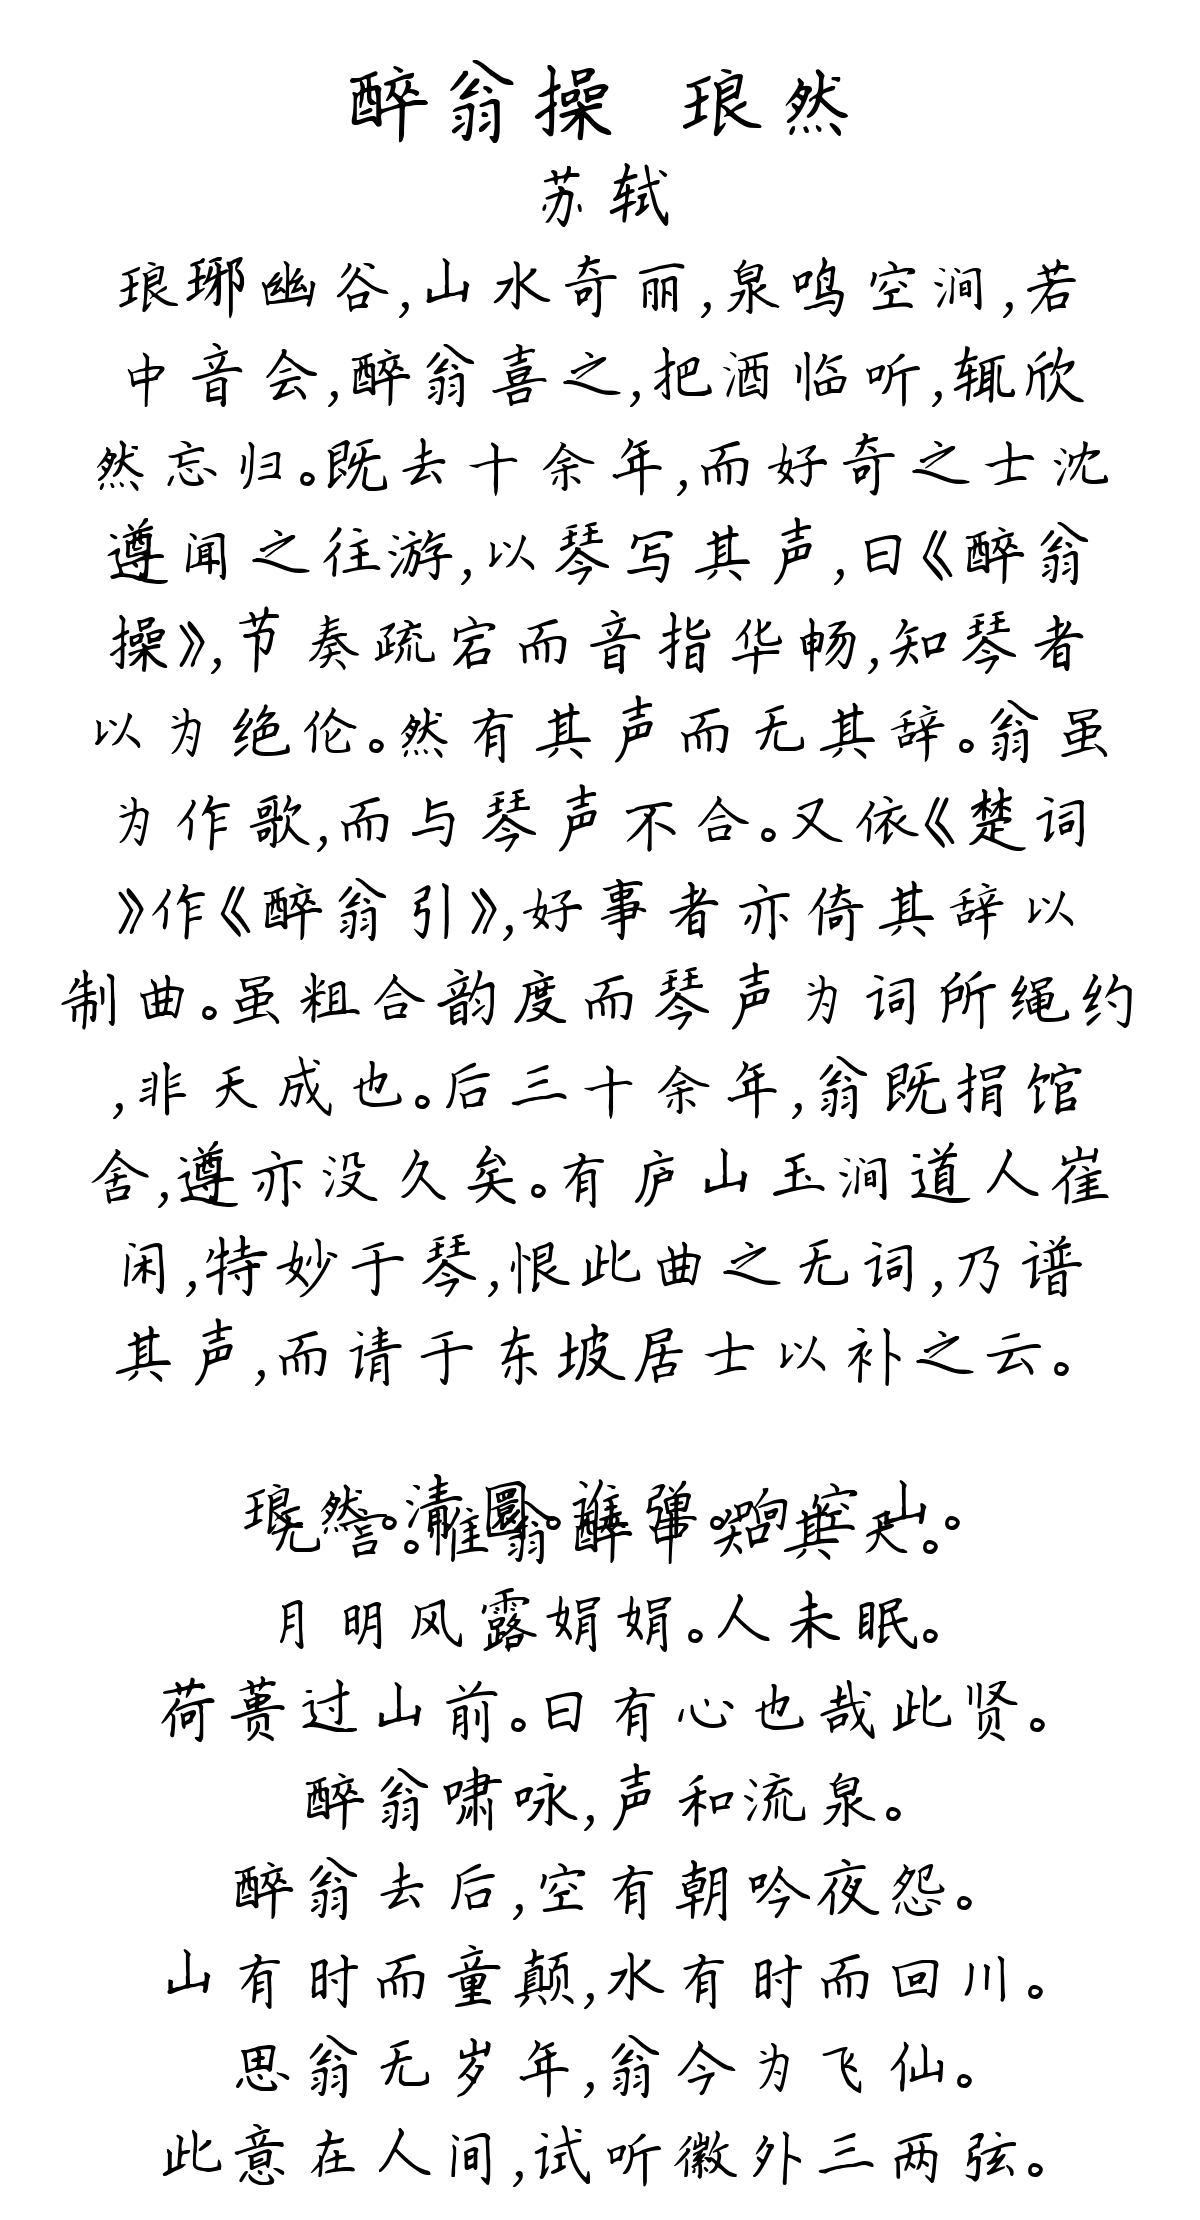 醉翁操 琅然
苏轼
琅琊幽谷,山水奇丽,泉鸣空涧,若
中音会,醉翁喜之,把酒临听,辄欣
然忘归。既去十余年,而好奇之士沈
遵闻之往游,以琴写其声,曰《醉翁
操》,节奏疏宕而音指华畅,知琴者
以为绝伦。然有其声而无其辞。翁虽
为作歌,而与琴声不合。又依《楚词
》作《醉翁引》,好事者亦倚其辞以
制曲。虽粗合韵度而琴声为词所绳约
,非天成也。后三十余年,翁既捐馆
舍,遵亦没久矣。有庐山玉涧道人崔
闲,特妙于琴,恨此曲之无词,乃谱
其声,而请于东坡居士以补之云。
琅然。清圜。谁弹。响空山。
无言。惟翁醉中知其天。
月明风露娟娟。人未眠。
荷蒉过山前。曰有心也哉此贤。
醉翁啸咏,声和流泉。
醉翁去后,空有朝吟夜怨。
山有时而童颠,水有时而回川。
思翁无岁年,翁今为飞仙。
此意在人间,试听徽外三两弦。